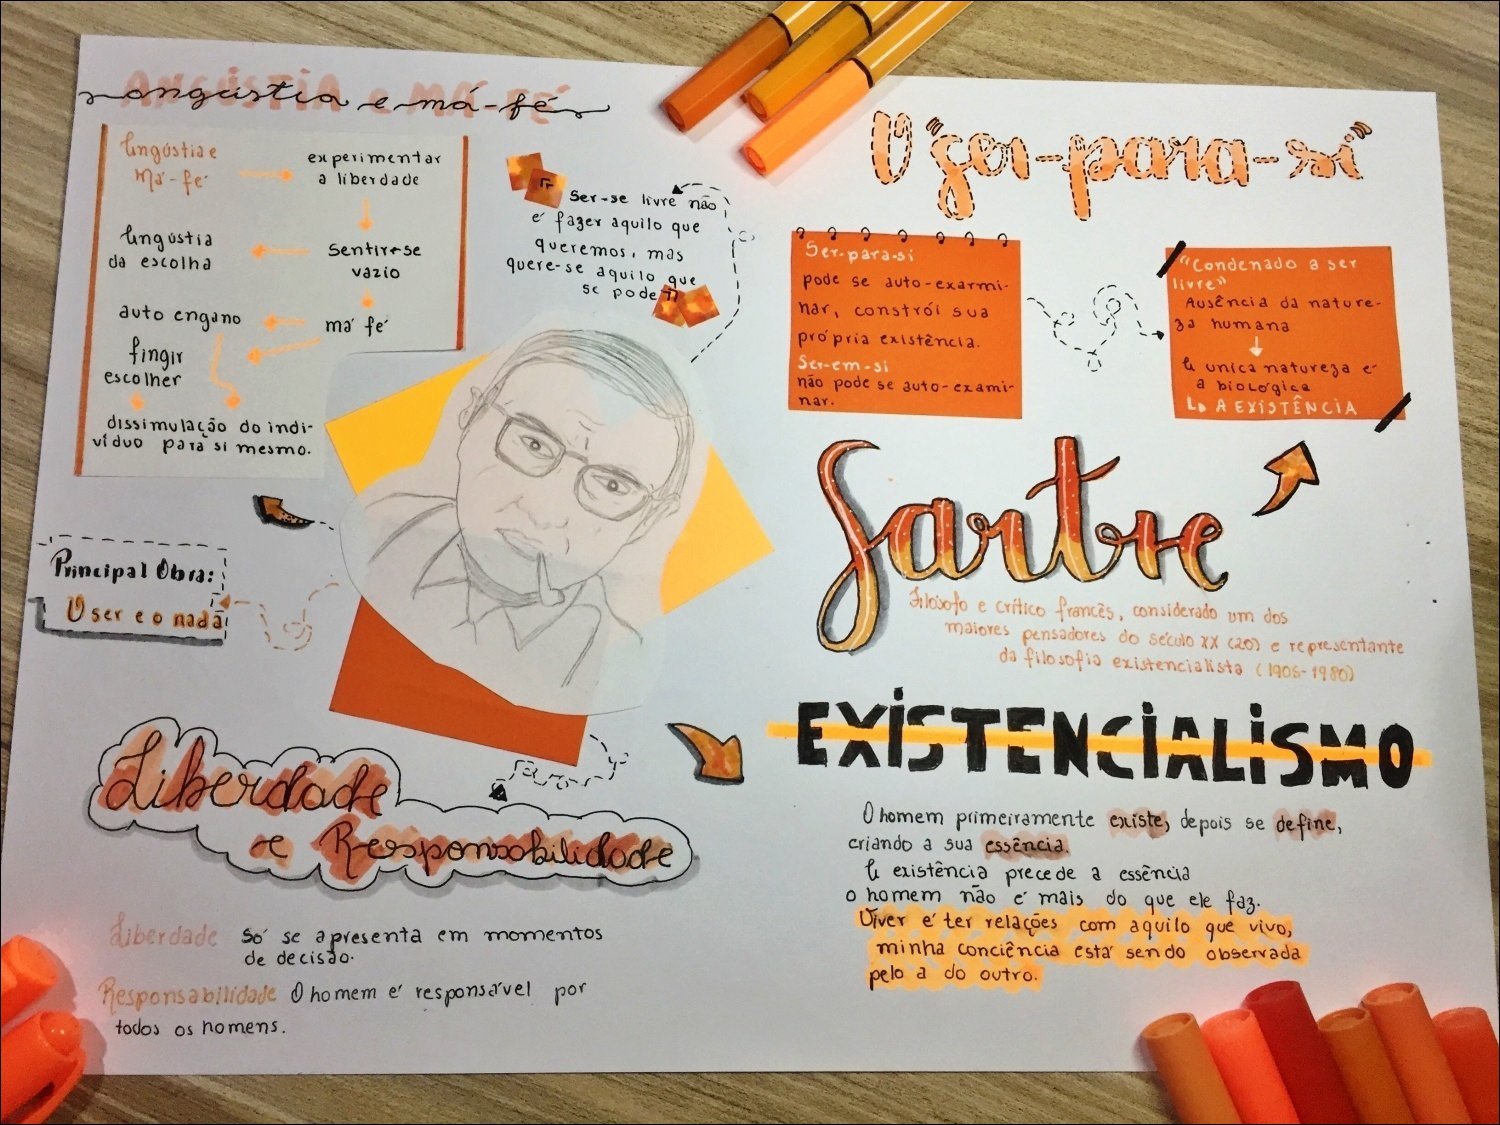 Angústia e má-fé
Angústia e
Má-fé
experimentar
a liberdade
Angústia
da escolha
Sentir-se
vazio
auto engano
má fé
fingir
escolher
dissimulação do indi-
víduo para si mesmo.
"Ser-se livre não
é fazer aquilo que
queremos, mas
quere-se aquilo que
se pode"
O "ser-para-si"
Ser-para-si
pode se auto-exarmi-
nar, constrói sua
própria existência.
Ser-em-si
não pode se auto-exami-
nar.
"Condenado a ser
livre"
Ausência da nature-
za humana
A unica natureza é
a biológica
A EXISTÊNCIA
Sartre
Filósofo e crítico francês, considerado um dos
maiores pensadores do século XX (20) e representante
da filosofia existencialista (1905-1980)
Principal Obra:
O ser e o nada
EXISTENCIALISMO
O homem primeiramente existe, depois se define,
criando a sua essência.
A existência precede a essência
o homem não é mais do que ele faz.
Viver é ter relações com aquilo que vivo,
minha conciência está sendo observada
pelo a do outro.
Liberdade
e Responsabilidade
Liberdade Só se apresenta em momentos
de decisão.
Responsabilidade O homem é responsável por
todos os homens.